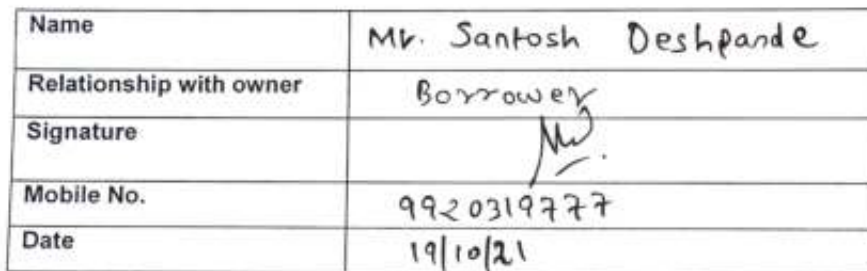 Name Mr. Santosh Deshpande
Relationship with owner Borrower
Signature
Mobile No. 9920319777
Date 19/10/21